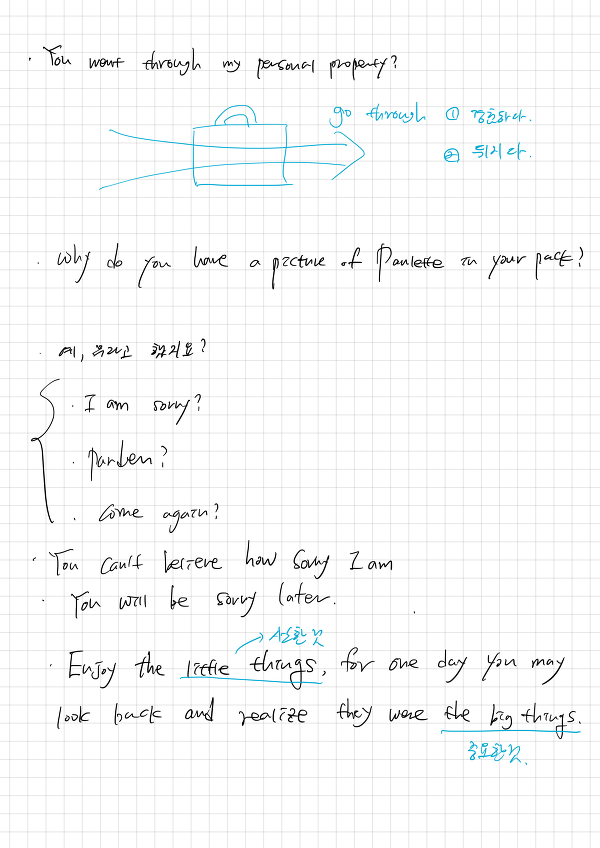 · You went through my personal property?
go through ① 경험하다.
② 뒤지다.
· Why do you have a picture of Paulette in your pack?
· 예, 뭐라고 했지요?
· I am sorry?
· Parden?
· Come again?
· You can't believe how sorry I am
· You will be sorry later.
사소한 것
· Enjoy the little things, for one day you may
look back and realize they were the big things.
중요한 것.